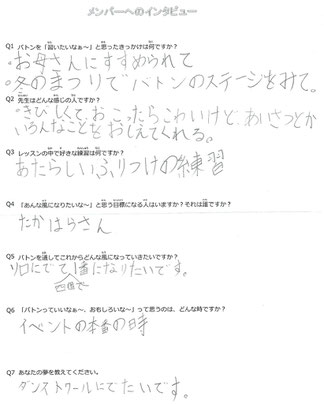 メンバーへのインタビュー
Q1 バトンを「習いたいなぁ～」と思ったきっかけは何ですか？
・お母さんにすすめられて
・冬のまつりでバトンのステージをみて。
Q2 先生はどんな感じの人ですか？
・きびしくて、おこったらこわいけど、あいさつとか
いろんなことをおしえてくれる。
Q3 レッスンの中で好きな練習は何ですか？
あたらしいふりつけの練習
Q4 「あんな風になりたいな～」と思う目標になる人はいますか？それは誰ですか？
たかはらさん
Q5 バトンを通してこれからどんな風になっていきたいですか？
ソロにでて1番になりたいです。
全国で
Q6 「バトンっていいなぁ～、おもしろいな～」って思うのは、どんな時ですか？
イベントの本番の時
Q7 あなたの夢を教えてください。
ダンストワールにでたいです。